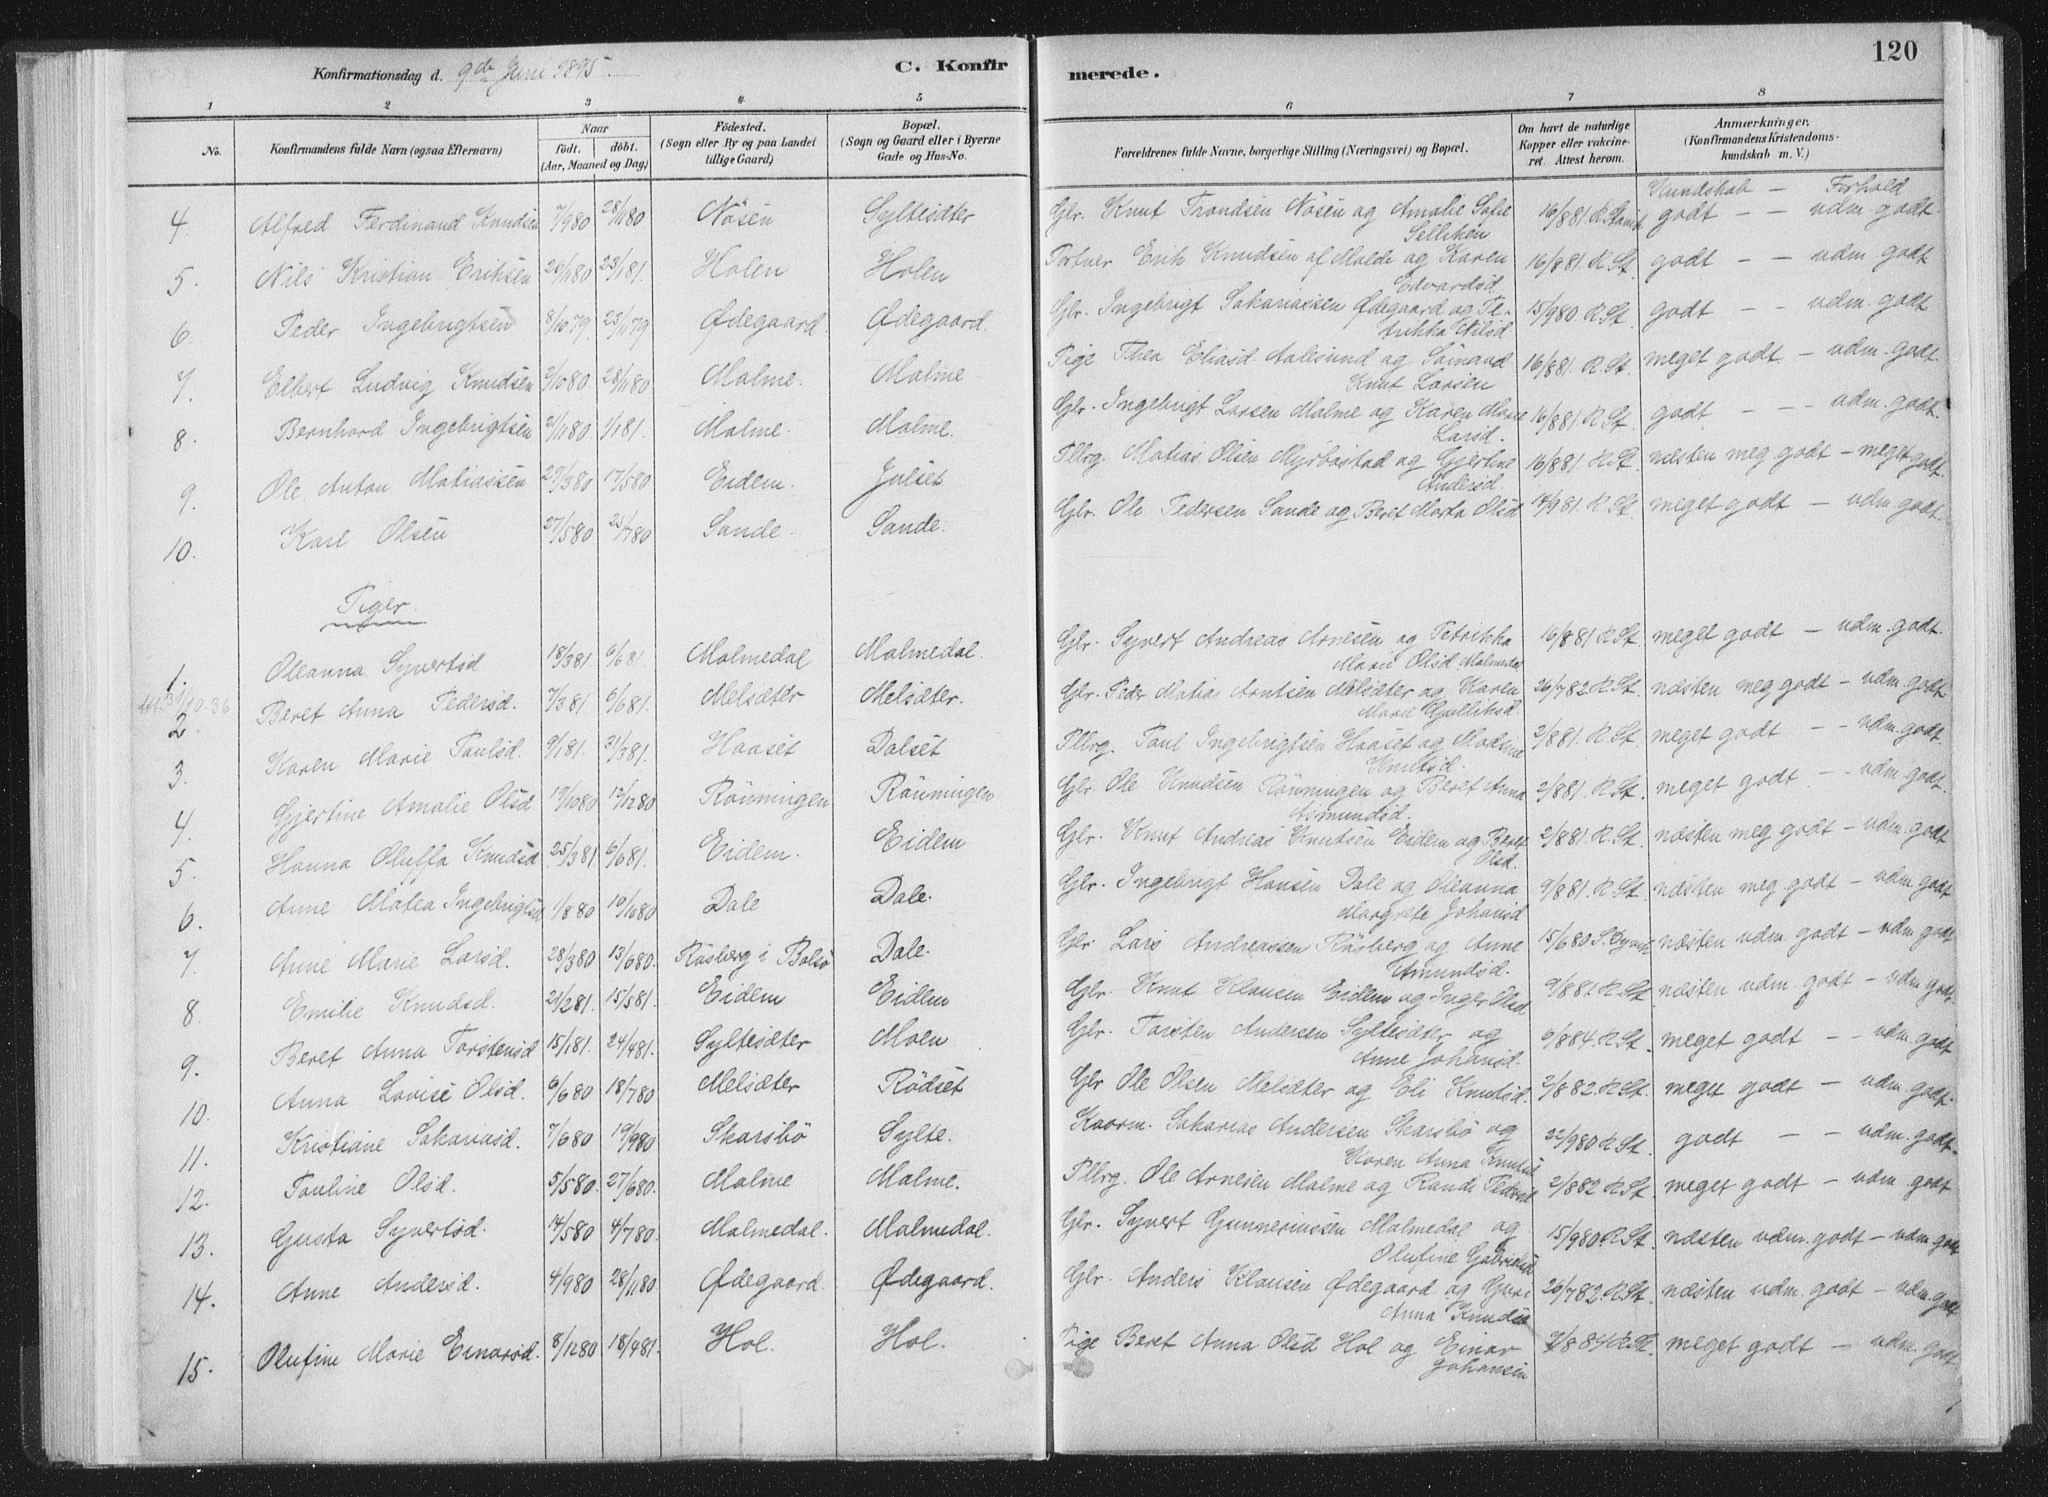 120
Konfirmationsdag d. 9de Juni 1895. C. Konfirmerede.
1 2 3 4 5 6 7 8
No. Konfirmandens fulde Navn (ogsaa Efternavn) Naar født. døbt. (Aar, Maaned og Dag) Fødested. (Sogn eller By og paa Landet tillige Gaard) Bopæl. (Sogn og Gaard eller i Byerne Gade og Hus-No. Forældrenes fulde Navne, borgerlige Stilling (Næringsvei) og Bopæl. Om havt de naturlige Kopper eller vakcineret. Attest herom. Anmærkninger. (Konfirmandens Kristendomskundskab m. V.)
Kundskab — Forhold
4 Alfred Ferdinand Knudsen 7/9 80 28/11 80 Nösen Syltesæter Glr. Knut Trondsen Nösen og Amalie Sofie Selliken 16/8 81. R. Stavik godt — — udm. godt.
5. Nils Kristian Eriksen 26/11 80 23/1 81. Holen Holen Tortner Erik Knudsen af Molde og Karen Edvardsd. 16/8 81. R. St. godt — — udm. godt
6. Peder Ingebrigtsen 8/10 79. 23/11 79 Ødegaard. Ødegaard. Glr. Ingebrigt Sakariassen Ødegaard og Petrikka Nilsd. 15/9 80 R. St. godt — — udm. godt
7. Elbert Ludvig Knudsen 2/10 80 28/11 80 Malme. Malme Pige Thea Eliasd. Aalesund og Sömand Knut Larsen 16/8 81. R. St. meget godt — udm. godt.
8. Bernhard Ingebrigtsen 21/11 80 1/1 81. Malme. Malme. Glr. Ingebrigt Larsen Malme og Karen Marie Larsd. 16/8 81. R. St. godt — — — udm. godt.
9. Ole Anton Matiassen 29/3 80 17/5 80 Eidem. Julset Pllrg. Matias Olsen Myrbostad og Gjertine Andersd. 16/8 81. R. St. næsten meg. godt — meget godt.
10. Karl Olsen 27/5 80 25/7 80 Sande. Sande. Glr. Ole Pedersen Sande og Beret Marta Olsd. 14/9 81. R. St. meget godt — udm. godt.
Piger.
1. Oleanna Syvertsd 18/3 81. 6/6 81. Malmedal Malmedal. Glr. Syvert Andreas Arnesen og Petrikka Marie Olsd. Malmedal 16/8 81 R. St. meget godt — udm. godt.
2 Beret Anna Pedersd. 7/3 81 6/6 81. Melsæter Melsæter. Glr. Peder Matias Arntsen Melsæter og Karen Marie Gulliksd. 26/7 82 R. St. næsten meg godt — udm. godt.
3. Karen Marie Paulsd. 9/1 81. 31/3 81. Haaset Dalset Pllrg. Paul Ingebrigtsen Haaset og Madsine Knutsd. 2/8 81. R. St. meget godt — — udm. godt.
4. Gjertine Amalie Olsd 19/10 80 12/12 80 Rönningen Rönningen Glr. Ole Knudsen Rönningen og Beret Anna Asmundsd. 2/8 81. R. St. meget godt — — udm. godt.
5. Hanna Oluffa Knudsd 25/3 81 6/6 81. Eidem. Eidem Glr. Knut Andreas Knutsen Eidem og Beret Olsd. 2/8 81. R. St. næsten meg. godt — udm. godt
6. Anne Matea Ingebrigtsd 1/8 80 10/10 80 Dale Dale. Glr. Ingebrigt Hansen Dale og Oleanna Margrete Johansd 9/8 81. R. St. næsten meg. godt — udm. godt
7. Anne Marie Larsd. 28/3 80 13/6 80. Råsberg i Bolsö Dale. Glr. Lars Andreassen Råsberg og Anne Amundsd. 15/6 80 næsten udm. godt — udm. godt
8. Emilie Knudsd. 21/2 81. 15/5 81. Eidem Eidem Glr. Knut Klausen Eidem og Inger Olsd 9/8 81. R. St. næsten udm. godt — udm. godt.
9. Beret Anna Torstensd 15/1 81. 24/4 81. Syltesæter Moen Glr. Torsten Andersen Syltesæter og Anne Johansd. 6/8 84. R. St. meget godt — — udm. godt
10. Anna Lovise Olsd. 6/6 80 18/7 80 Melsæter Rödset Glr. Ole Olsen Melsæter og Eli Knutsd. 2/8 82. R. St. meget godt — udm. godt.
11. Kristiane Sakariasd. 7/6 80 19/9 80 Skarsbö Sylte. Kaarm. Sakarias Andersen Skarsbö og Karen Anna Knutsd 22/9 80 R. St. godt — — udm. godt.
12. Pauline Olsd. 5/5 80. 27/6 80. Malme Malme. Pllrg. Ole Arnesen Malme og Randi Pedersd 2/8 82 R. St. meget godt — udm. godt
13. Gusta Syvertsd. 14/5 80 4/7 80. Malmedal. Malmedal. Glr. Syvert Gunneriussen Malmedal og Olufine Gabrielsd 15/9 80. R. St. næsten udm. godt — udm. godt
14. Anne Andersd. 4/9 80 28/11 80 Ødegaard. Ødegaard. Glr. Anders Klausen Ødegaard og Guri Anna Knudsd 26/7 82. R. St. næsten udm. godt — udm. godt
15. Olufine Marie Einarsd. 8/12 80 18/4 81. Hol. Hol. Pige Beret Anna Olsd Hol og Einar Johansen 7/8 84 R. St. meget godt — udm. godt.